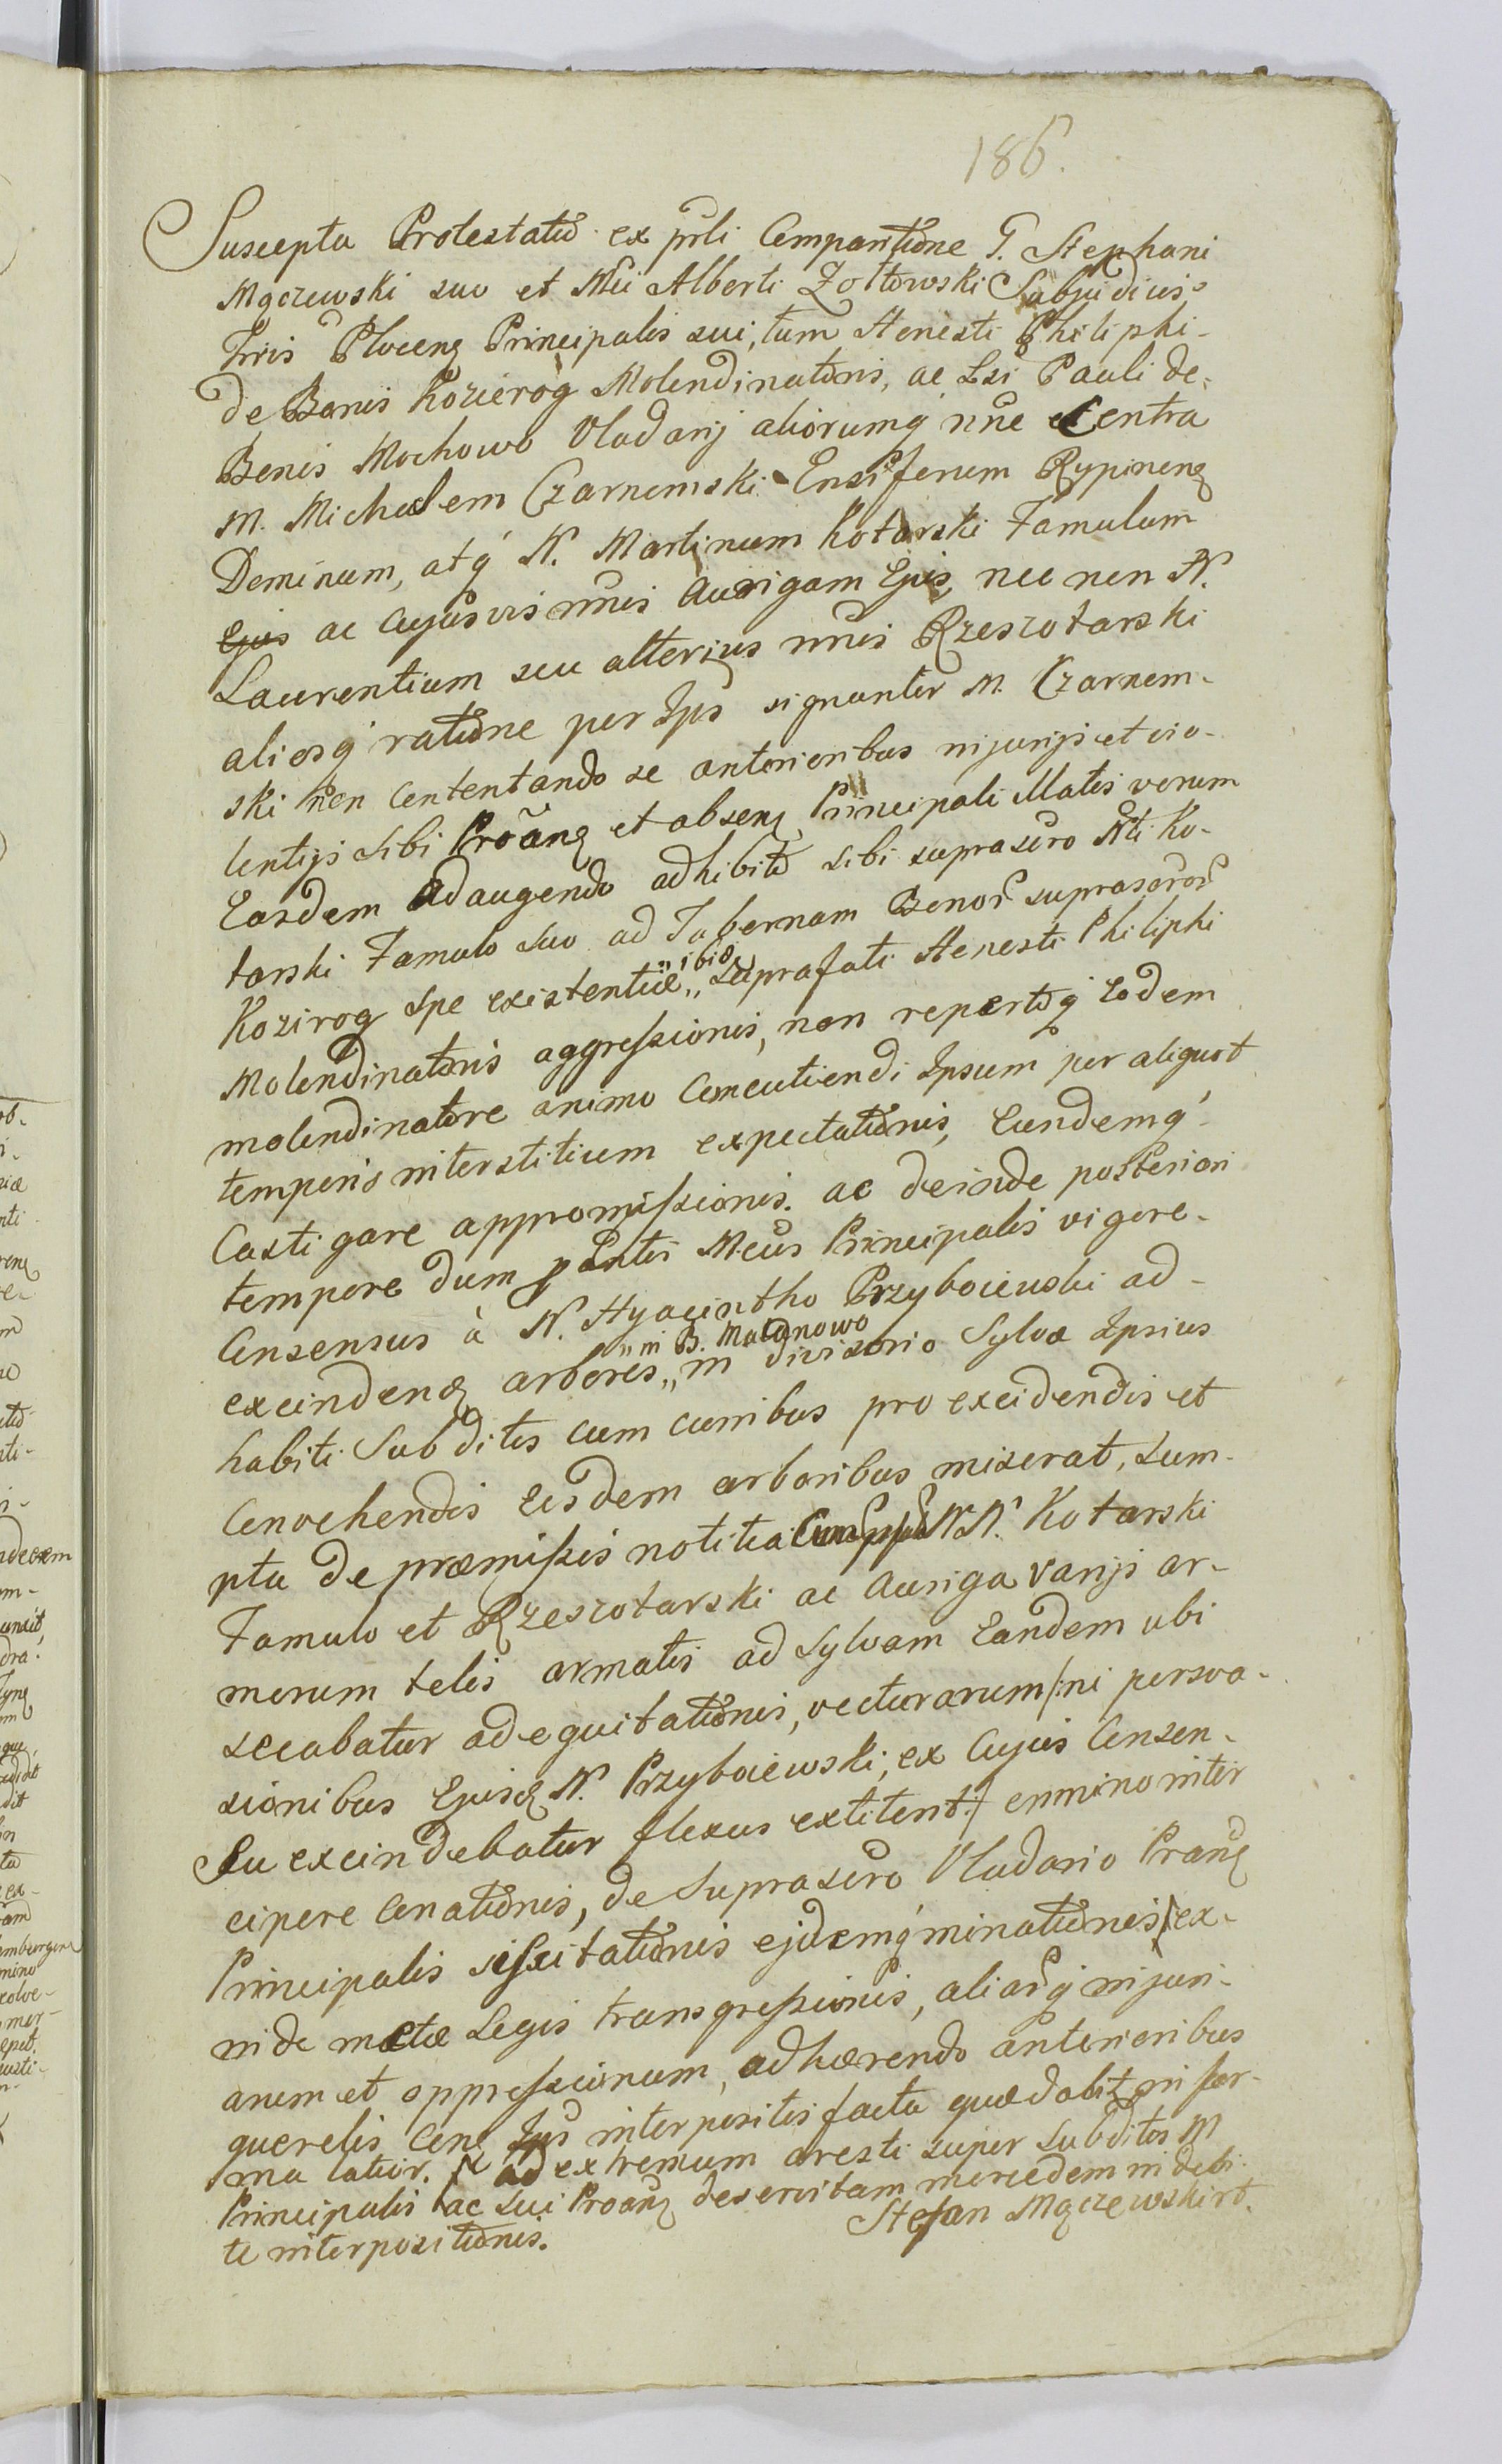 186.
Suscepta Protestatio ex prli Comparitione G. Stephani
Mączewski suo et Mci Alberti Zołtowski Subjudicis
Trris Plocens Principalis sui, tum Honesti Philiphi
de Bonis Kozieróg Molendinatoris, ac Lsi Pauli de
Bonis Mochowo Vladarij aliorumq nne Contra
M. Michaelem Czarnomski Ensiferum Rypinens
Dominum, atq N. Martinum Kotarski Famulum
Ejus ac Cujusvis nnis Aurigam Ejus, nec non N.
Laurentium seu alterius nnis Rzeszotarski
aliosq ratione per Ips signanter M. Czarnom-
ski non Contentando se anterioribus injurijs et vio-
lentijs sibi Proans et absens Principali Illatis verum
Easdem adaugendo adhibito sibi suprascro Nti Ko-
tarski Famulo suo ad Tabernam Bonor suprascror
Kozirog spe existentiæ „ibid„ suprafati Honesti Philiphi
Molendinatoris aggressionis, non repertoq Eodem
molendinatore animo Concutiendi Ipsum per aliquot
temporis interstitium expectationis, Eundemq
Castigare appromissionis. ac deinde posteriori
tempore dum Mcus Principalis vigore
Consensus à N. Hyacintho Przyboiewski ad
excindens arbores „in B. Malanowo„ in divisorio Sylvæ Ipsius
habiti Subditos cum curribus pro excidendis et
Convehendis Eisdem arboribus miserat, sum-
pta de præmissis notitia Cum N. Kotarski
Famulo et Rzeszotarski ac Auriga varijs ar-
morum telis armatis ad Sylvam Eandem ubi
secabatur adequitationis, vecturarum /:ni persva-
sionibus Ejusd N. Przyboiewski, ex Cujus Consen-
su excindebatur flexus extiterit:/ omnino inter
cipere Conationis, de Suprascro Vladario Prans
Principalis sisscitationis ejdemq minationis /ex-
inde metæ Legis transgressionis, aliarq injuri-
arum et oppressionum, adhærendo anterioribus
querelis Con Ips interpositis facta quæ dabitur in for-
ma latior. /x ad extremum aresti super subditos M
Principalis ac sui Proans deservitam mercedem indebi-
te interpositionis.
Stefan Mączewski